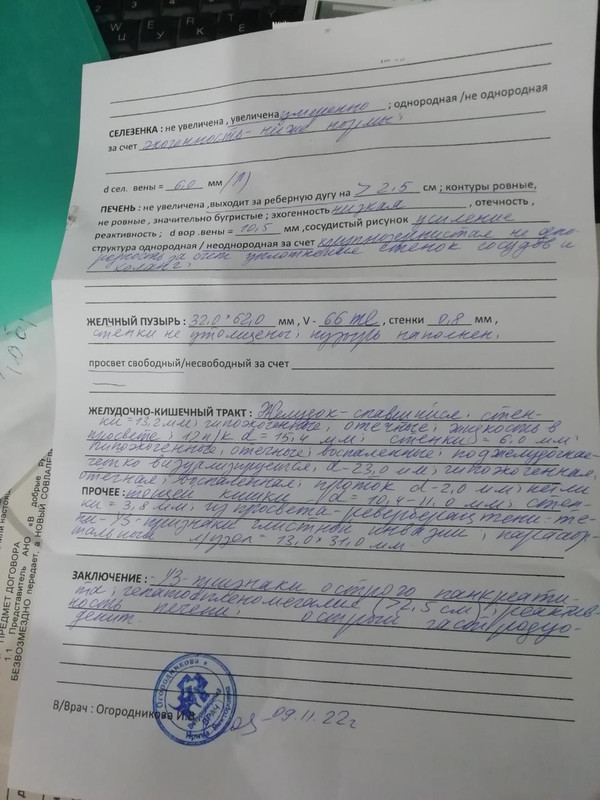 W E R T Y
Ц У К Е
СЕЛЕЗЕНКА : не увеличена , увеличена умеренно ; однородная /не однородная
за счет эхогенность - ниже нормы ;
d сел. вены = 6,0 мм /N/
ПЕЧЕНЬ : не увеличена ,выходит за реберную дугу на > 2,5 см ; контуры ровные,
не ровные , значительно бугристые ; эхогенность низкая , отечность ,
реактивность ; d вор .вены = 10,5 мм ,сосудистый рисунок усиление
структура однородная / неоднородная за счет крупнозернистая не одно-
родность за счет уплотнения стенок сосудов и
холанг;
ЖЕЛЧНЫЙ ПУЗЫРЬ : 32,0 * 62,0 мм , V - 66 ml , стенки 0,8 мм ,
стенки не утолщены; пузырь наполнен.
просвет свободный/несвободный за счет
ЖЕЛУДОЧНО-КИШЕЧНЫЙ ТРАКТ : Желудок - спавшийся; стен-
ки = 13,2 мм; гипоэхогенные, отечные; жидкость в
просвете; 12 п/к d = 15,4 мм; стенки = 6,0 мм;
гипоэхогенные, отечные, воспаленные; поджелудочная-
четко визуализируется, d - 23,0 мм; гипоэхогенная,
отечная, воспаленная; проток d - 2,0 мм; петли
ПРОЧЕЕ : тощей кишки - d = 10,4 - 11,0 мм; стен-
ки = 3,8 мм; из просвета - реверберац. тени - те-
ни - УЗ - признаки глистной инвазии;
л/узел = 13,0 * 31,0 мм.
ЗАКЛЮЧЕНИЕ : - УЗ - признаки острого панкреати-
та; гепатоспленомегалия (> 2,5 см); реактив-
ность печени; острый гастродуо-
денит.
В/Врач : Огородникова И.В.
09.11.22г
Огородникова
ВРАЧ
Ирина Викторовна
ПРЕДМЕТ ДОГОВОРА
1.1 Представитель АНО «В добрые
БЕЗВОЗМЕЗДНО передает, а НОВЫЙ СОВЛАДЕЛЕ